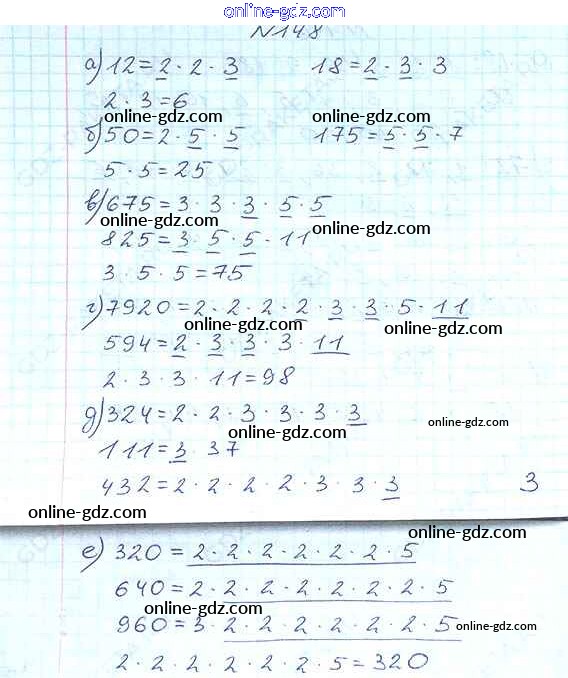 online-gdz.com
№148
а) 12 = 2 · 2 · 3 18 = 2 · 3 · 3
2 · 3 = 6
online-gdz.com online-gdz.com
б) 50 = 2 · 5 · 5 175 = 5 · 5 · 7
5 · 5 = 25
online-gdz.com
в) 675 = 3 · 3 · 3 · 5 · 5
online-gdz.com online-gdz.com
825 = 3 · 5 · 5 · 11
3 · 5 · 5 = 75
online-gdz.com
г) 7920 = 2 · 2 · 2 · 2 · 3 · 3 · 5 · 11
online-gdz.com online-gdz.com
594 = 2 · 3 · 3 · 3 · 11
2 · 3 · 3 · 11 = 98
online-gdz.com
д) 324 = 2 · 2 · 3 · 3 · 3 · 3
online-gdz.com online-gdz.com
111 = 3 · 37
432 = 2 · 2 · 2 · 2 · 3 · 3 · 3 3
online-gdz.com
online-gdz.com
е) 320 = 2 · 2 · 2 · 2 · 2 · 2 · 5
640 = 2 · 2 · 2 · 2 · 2 · 2 · 2 · 5
online-gdz.com
960 = 3 · 2 · 2 · 2 · 2 · 2 · 2 · 5
online-gdz.com
2 · 2 · 2 · 2 · 2 · 2 · 5 = 320